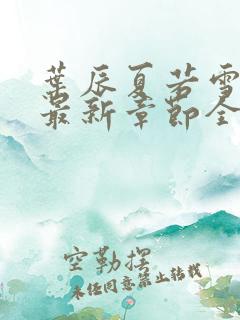 葉辰夏若雪
最新章節全
空勒摆
未经同意禁止转载